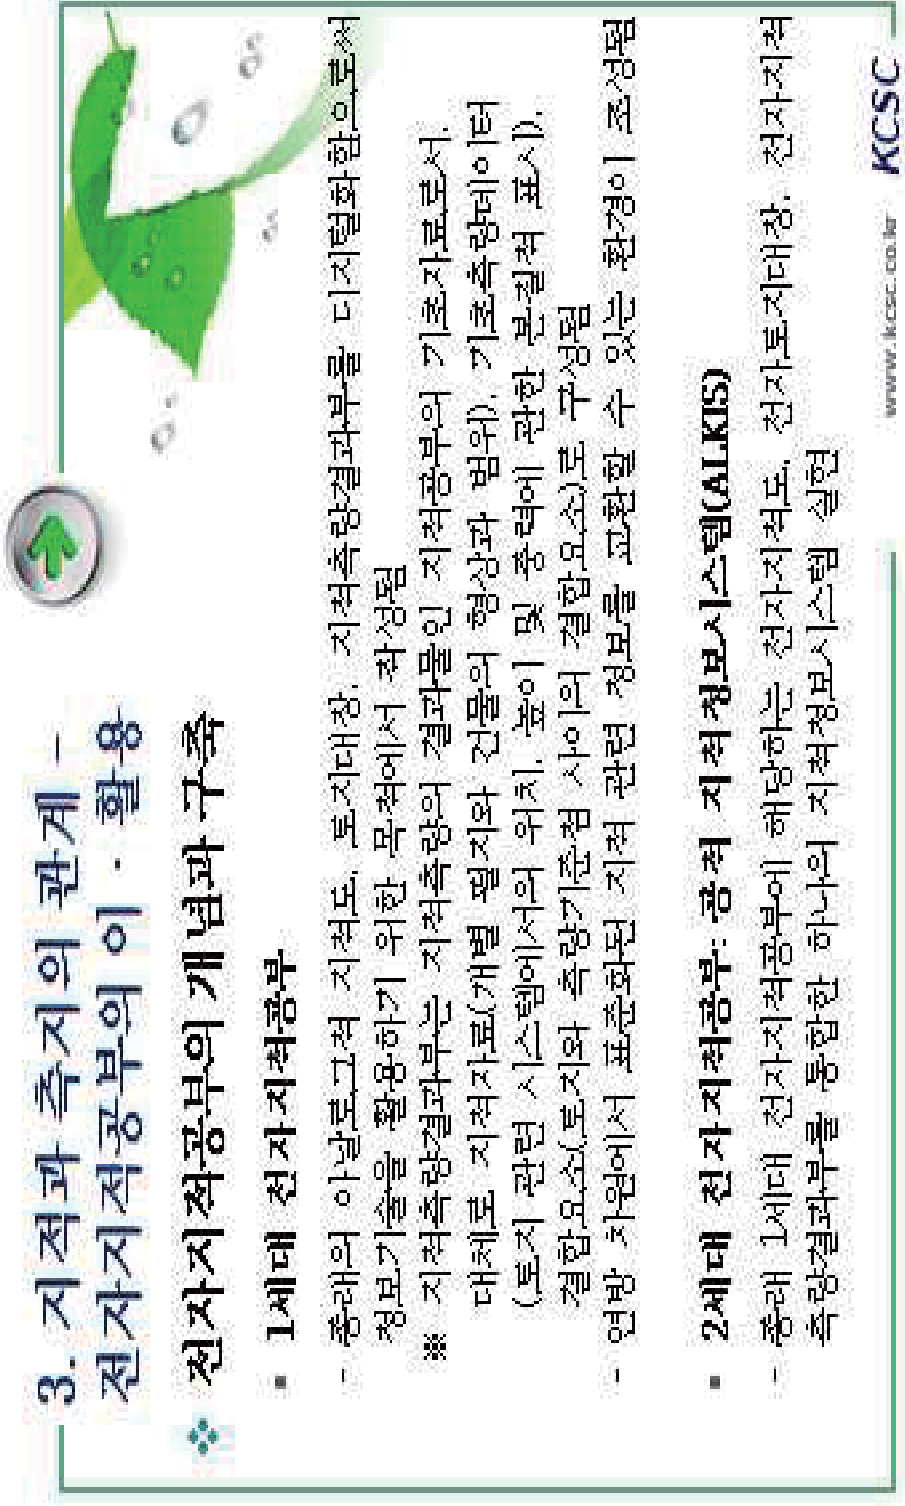 3. 지적과 측지의 관계 –
전자지적공부의 이 · 활용
전자지적공부의 개념과 구축
▪ 1세대 전자지적공부
- 종래의 아날로그적 지적도, 토지대장, 지적측량결과부를 디지털화함으로써
정보기술을 활용하기 위한 목적에서 작성됨
※ 지적측량결과부는 지적측량의 결과물인 지적공부의 기초자료로서,
대체로 지적자료(개별 필지와 건물의 형상과 범위), 기초측량데이터
(토지 관련 시스템에서의 위치, 높이 및 중력에 관한 본질적 표시),
결합요소(토지와 측량기준점 사이의 결합요소)로 구성됨
- 연방 차원에서 표준화된 지적 관련 정보를 교환할 수 있는 환경이 조성됨
▪ 2세대 전자지적공부: 공적 지적정보시스템(ALKIS)
- 종래 1세대 전자지적공부에 해당하는 전자지적도, 전자토지대장, 전자지적
측량결과부를 통합한 하나의 지적정보시스템 실현
www.kcsc.co.kr KCSC